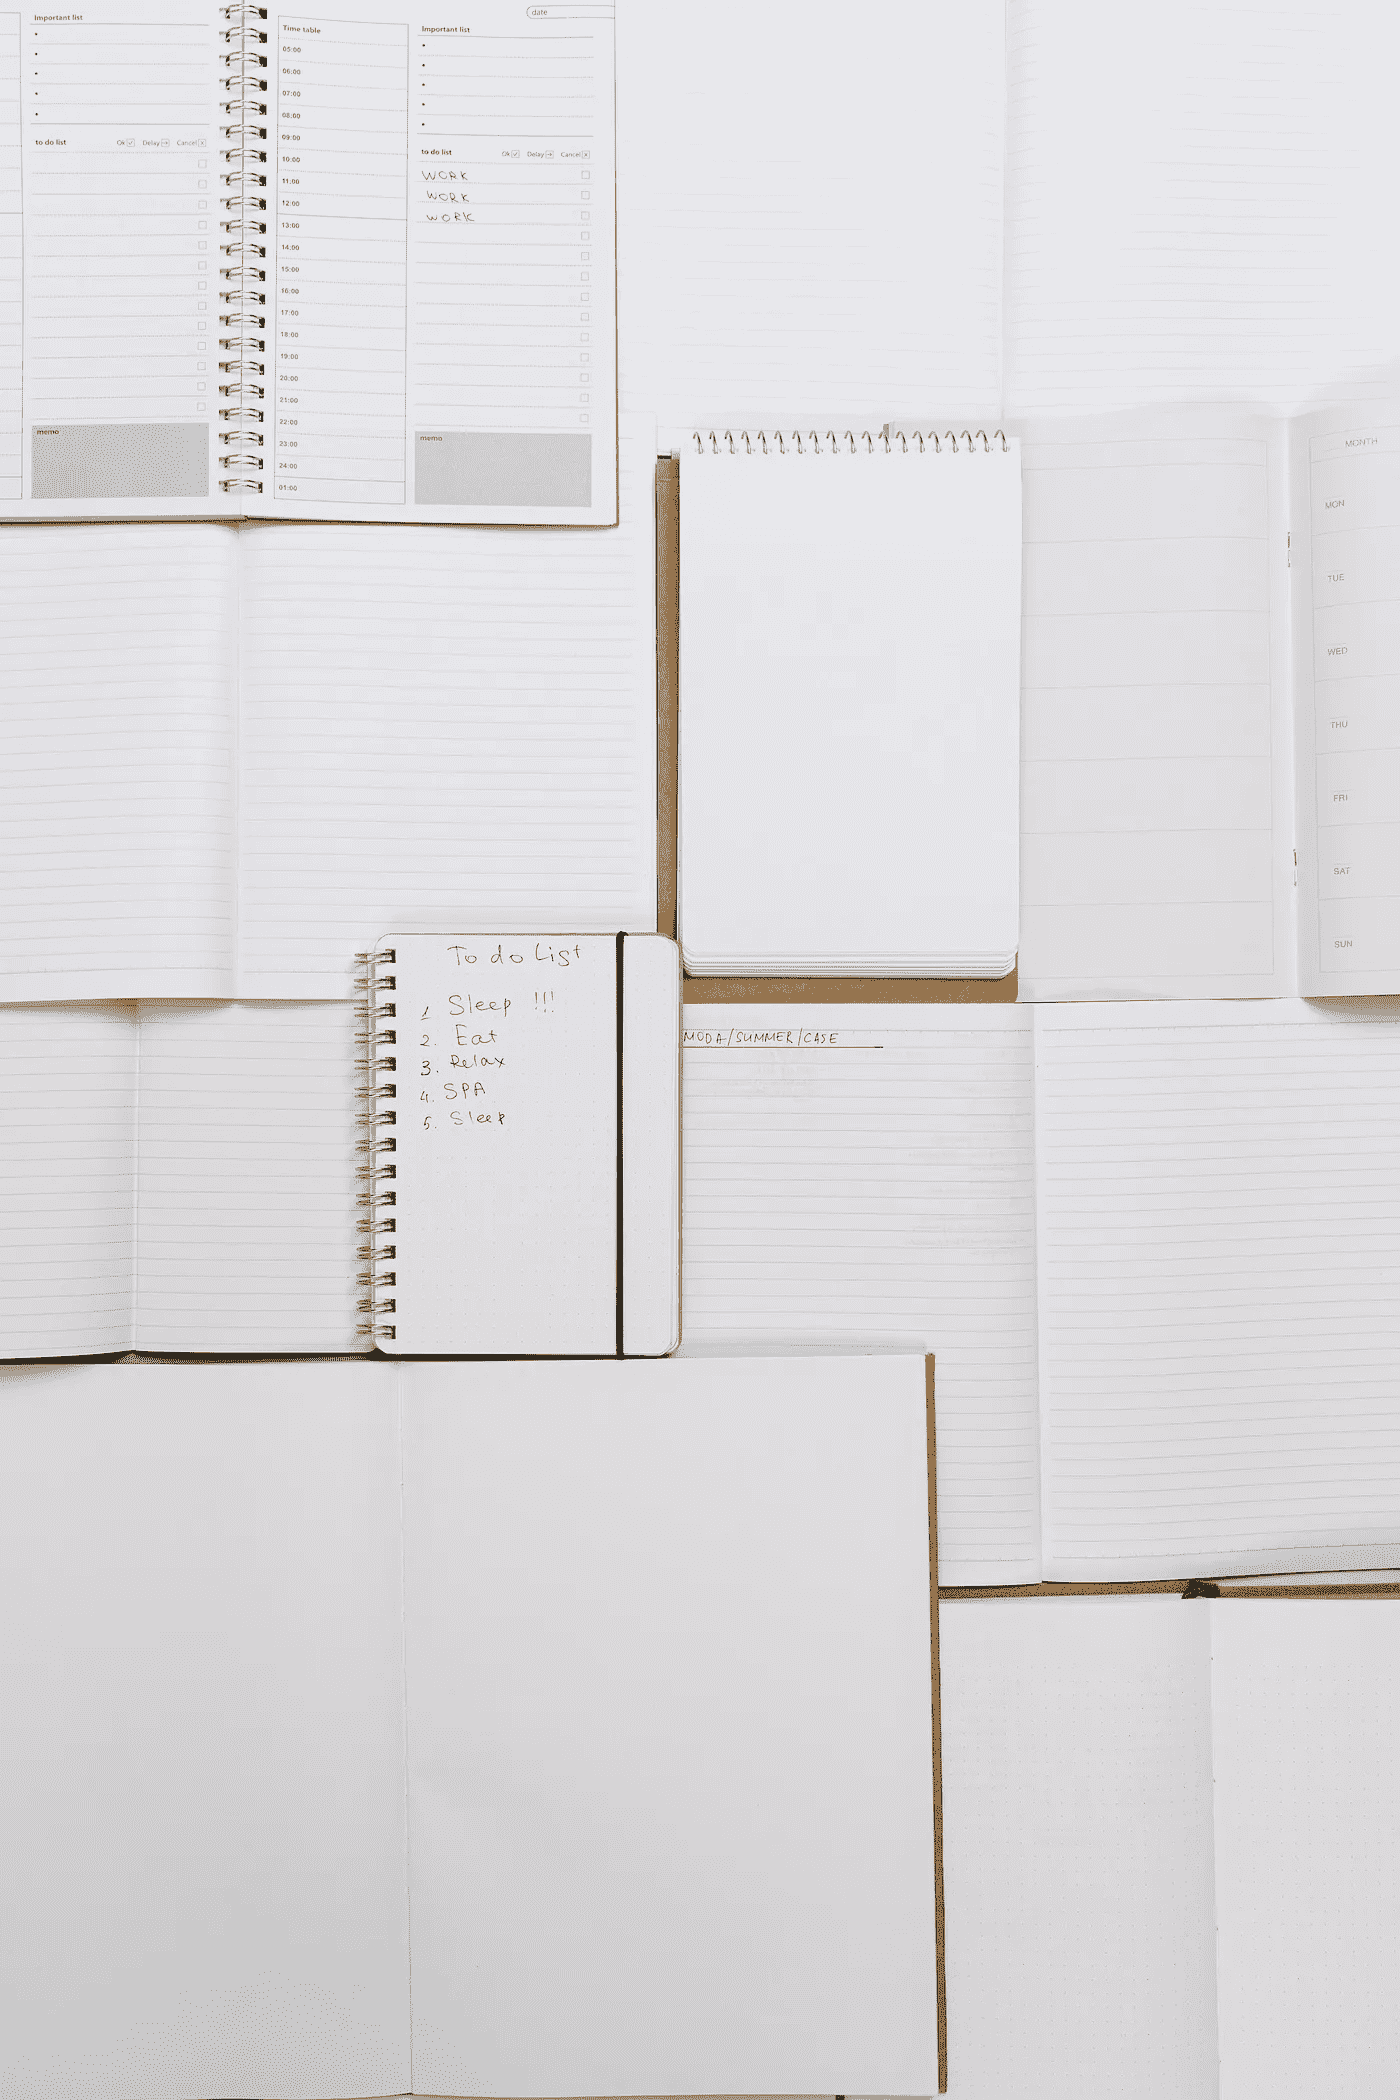 Important list
to do list
Ok Delay Cancel
memo
date
Time table
05:00
06:00
07:00
08:00
09:00
10:00
11:00
12:00
13:00
14:00
15:00
16:00
17:00
18:00
19:00
20:00
21:00
22:00
23:00
24:00
01:00
Important list
to do list
Ok Delay Cancel
WORK
WORK
WORK
memo
MONTH
MON
TUE
WED
THU
FRI
SAT
SUN
To do List
1 Sleep !!!
2. Eat
3. Relax
4. SPA
5. Sleep
MODA/SUMMER/CASE